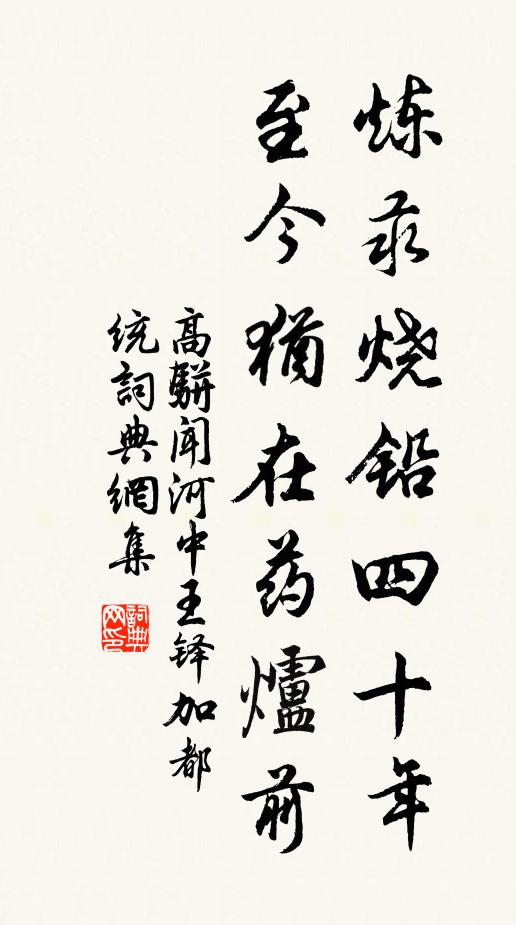 炼汞烧铅四十年
至今犹在药爐前
高駢闻河中王铎加都
统詞典網集
詞典网印